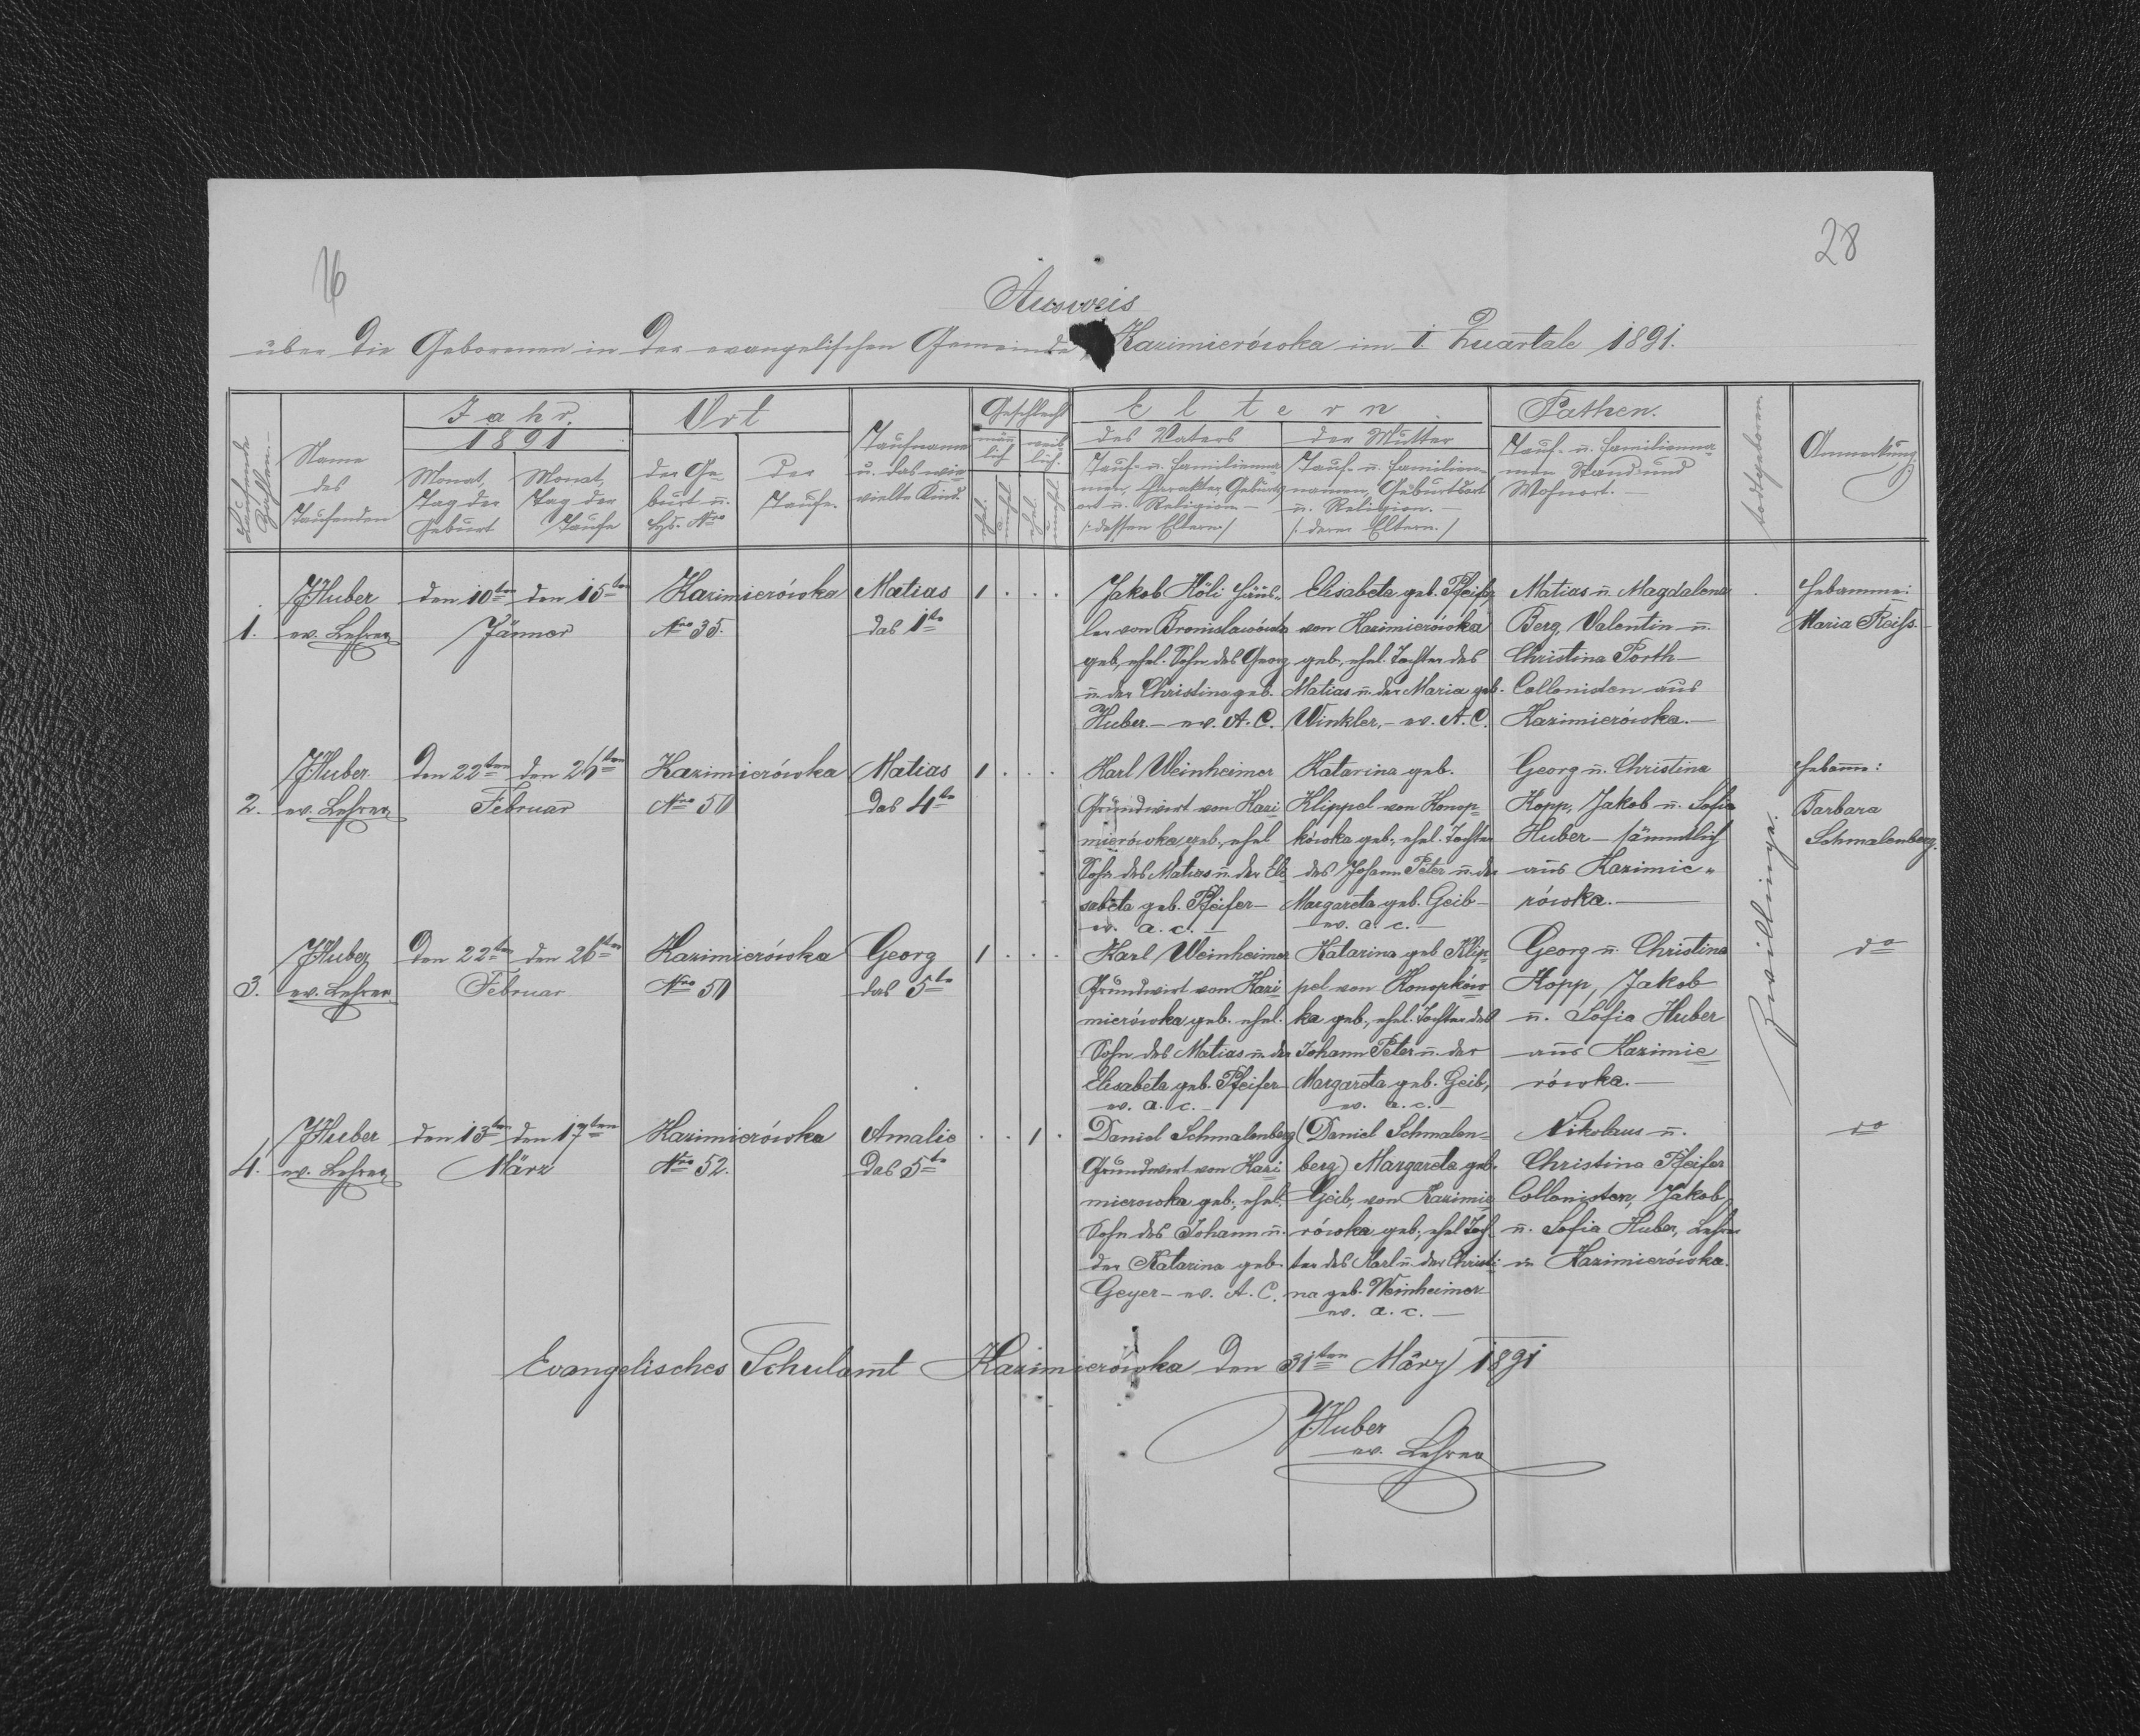 16
28
Ausweis
über die Geborenen in der evangelischen Gemeinde Kazimierówka im I. Quartale 1891.
Laufende Zahlen.
Name des Taufenden
Jahr.
1891
Monat, Tag der Geburt
Monat, Tag der Taufe
Ort
der Geburt u. Hs. Nro
der Taufe.
Taufname u. das wievielte Kind.
Geschlecht
männlich
weiblich.
ehel.
unehel.
ehel.
unehel.
Eltern
des Vaters
Tauf- u. Familienna-
men, Charakter, Geburts-
ort u. Religion -
/: dessen Eltern:/
der Mutter
Tauf- u. Familien-
namen, Geburtsort
u. Religion. -
/: deren Eltern. /
Pathen.
Tauf- u. Familienna-
men Stand und
Wohnort. -
todtgeboren
Anmerkung.
1.
JHuber
ev. Lehrer
den 10ten
den 15ten
Jänner
Kazimierówka
Nro 35.
Matias
das 1te
1 . . .
Jakob Höli Häus-
ler von Bronislawówka
geb., ehel. Sohn des Georg
u. der Christina geb.
Huber. - ev. A. C.
Elisabeta geb. Pfeifer
von Kazimierówka
geb., ehel. Tochter des
Matias u. der Maria geb.
Winkler, - ev. A. C.
Matias u. Magdalena
Berg, Valentin u.
Christina Porth -
Collonisten aus
Kazimierówka. -
Hebamme:
Maria Reiss. -
2.
JHuber.
ev. Lehrer
den 22ten
den 26ten
Februar
Kazimierówka
Nro 50
Matias
das 4te
1 . . .
Karl Weinheimer
Grundwirt von Kazi-
mierówka geb., ehel
Sohn des Matias u. der Eli-
sabeta geb. Pfeifer -
ev. a. c. -
Katarina geb.
Klippel von Konop-
kówka geb., ehel. Tochter
des Johann Peter u. der
Margareta geb. Geib -
ev. a. c. -
Georg u. Christina
Kopp, Jakob u. Sofia
Huber - sämmtlich
aus Kazimie-
rówka. -
Zwillinge.
Hebame:
Barbara
Schmalenberg.
3.
JHuber
ev. Lehrer
den 22ten
den 26ten
Februar
Kazimierówka
Nro 50
Georg
das 5te
1 . . .
Karl Weinheimer
Grundwirt von Kazi-
mierówka geb. ehel.
Sohn des Matias u. der
Elisabeta geb. Pfeifer
ev. a. c. -
Katarina geb Klip-
pel von Konopków-
ka geb., ehel. Tochter des
Johann Peter u. der
Margareta geb. Geib,
ev. a. c. -
Georg u. Christina
Kopp, Jakob
u. Sofia Huber
aus Kazimie-
rówka. -
do
4.
JHuber
ev. Lehrer
den 13ten
den 17ten
März
Kazimierówka
Nro 52.
Amalie
das 5te
. . 1 .
Daniel Schmalenberg
Grundwirt von Kazi-
mierowka geb., ehel.
Sohn des Johann u.
der Katarina geb.
Geyer - ev. A. C.
(Daniel Schmalen-
berg) Margareta geb.
Geib, von Kazimie-
rówka geb., ehel Toch-
ter des Karl u. der Christi-
na geb. Weinheimer
ev. a. c. -
Nikolaus u.
Christina Pfeifer
Collonisten, Jakob
u. Sofia Huber, Lehrer
in Kazimierówka.
do
Evangelisches Schulamt Kazimierówka den 31ten März 1891
JHuber
ev. Lehrer